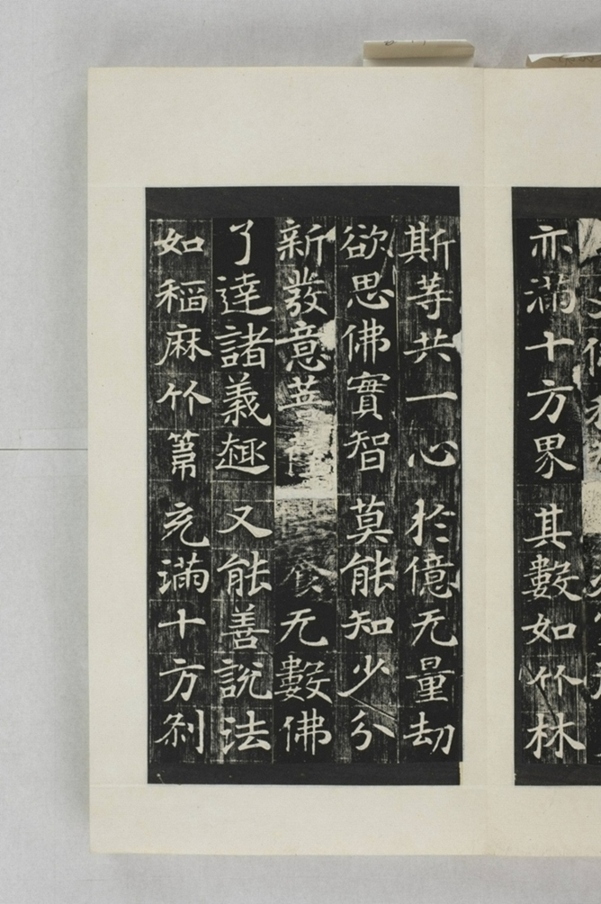 亦滿十方界其數如竹林
斯等共一心於億无量劫
欲思佛實智莫能知少分
新發意菩无數佛
了達諸義趣又能善說法
如稻麻竹葦充滿十方刹